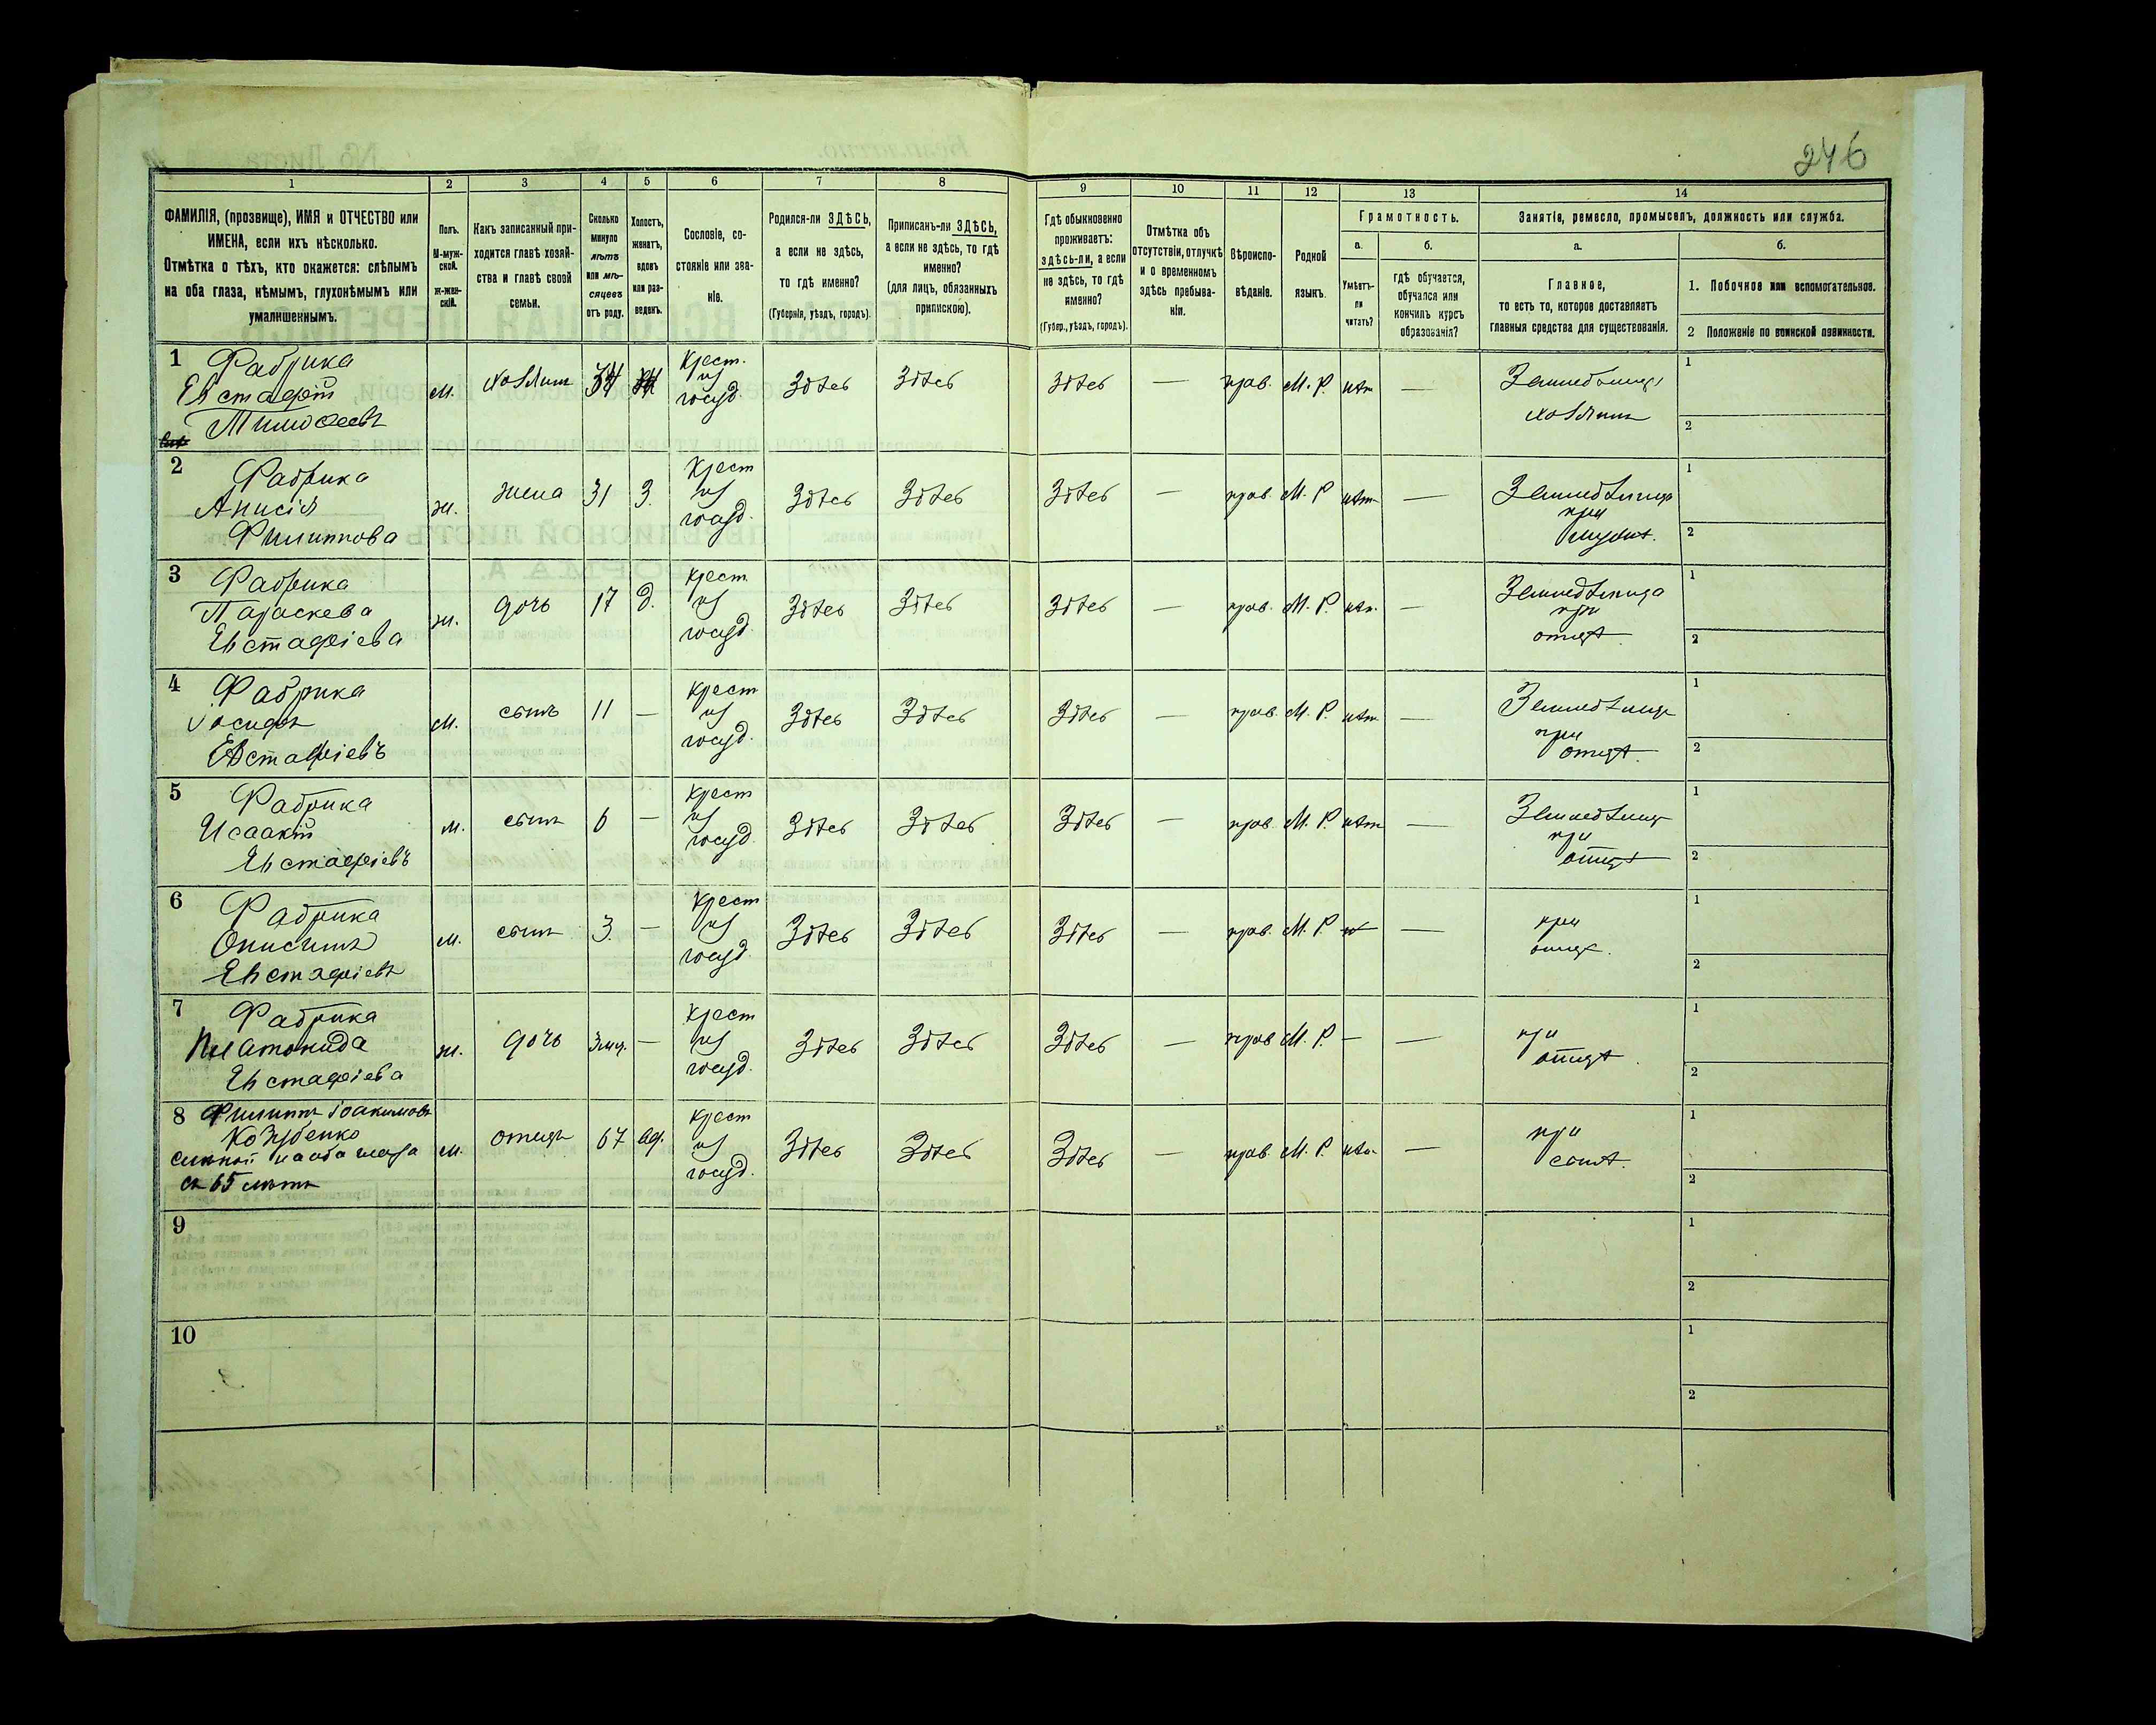 246
1 2 3 4 5 6 7 8 9 10 11 12 13 14
ФАМИЛІЯ, (прозвище), ИМЯ и ОТЧЕСТВО или
ИМЕНА, если ихъ нѣсколько.
Отмѣтка о тѣхъ, кто окажется: слѣпымъ
на оба глаза, нѣмымъ, глухонѣмымъ или
умалишеннымъ.
Полъ.
М-муж-
ской.
Ж-жен-
скій.
Какъ записанный при-
ходится главѣ хозяй-
ства и главѣ своей
семьи.
Сколько
минуло
лѣтъ
или мѣ-
сяцевъ
отъ роду.
Холостъ,
женатъ,
вдовъ
или раз-
веденъ.
Сословіе, со-
стояніе или зва-
ніе.
Родился-ли ЗДѢСЬ,
а если не здѣсь,
то гдѣ именно?
(Губернія, уѣздъ, городъ).
Приписанъ-ли ЗДѢСЬ,
а если не здѣсь, то гдѣ
именно?
(для лицъ, обязанныхъ
припискою).
Гдѣ обыкновенно
проживаетъ:
здѣсь-ли, а если
не здѣсь, то гдѣ
именно?
(Губер., уѣздъ, городъ).
Отмѣтка объ
отсутствіи, отлучкѣ
и о временномъ
здѣсь пребыва-
ніи.
Вѣроиспо-
вѣданіе.
Родной
языкъ.
Грамотность.
а.
Умѣетъ-
ли
читать?
б.
гдѣ обучается,
обучался или
кончилъ курсъ
образованія?
Занятіе, ремесло, промыселъ, должность или служба.
а.
Главное,
то есть то, которое доставляетъ
главныя средства для существованія.
б.
1. Побочное или вспомогательное.
2 Положеніе по воинской повинности.
1 Фабрика
Евстафій
Тимофеевъ
м. хозяинъ
Крест.
из
госуд.
Здѣсь Здѣсь Здѣсь — прав. М. Р. нѣт —
Земледѣлецъ
хозяинъ
1
2
2 Фабрика
Анисія
Филиппова
ж. жена 31 З.
Крест
из
госуд.
Здѣсь Здѣсь Здѣсь — прав. М. Р. нѣт —
Земледѣлица
при
мужѣ.
1
2
3 Фабрика
Параскева
Евстафіева
ж. дочь 17 д.
Крест
из
госуд.
Здѣсь Здѣсь Здѣсь — прав. М. Р. нѣт —
Земледѣлица
при
отцѣ
1
2
4 Фабрика
Іосифъ
Евстафіевъ
м. сынъ 11 —
Крест
из
госуд.
Здѣсь Здѣсь Здѣсь — прав. М. Р. нѣт —
Земледѣлецъ
при
отцѣ.
1
2
5 Фабрика
Исаакій
Евстафіевъ
м. сынъ 6 —
Крест
из
госуд.
Здѣсь Здѣсь Здѣсь — прав. М. Р. нѣт —
Земледѣлецъ
при
отцѣ
1
2
6 Фабрика
Онисимъ
Евстафіевъ
м. сынъ 3. —
Крест
из
госуд.
Здѣсь Здѣсь Здѣсь — прав. М. Р. —
при
отцѣ.
1
2
7 Фабрика
Платонида
Евстафіева
ж. дочь 3 мц. —
Крест
из
госуд.
Здѣсь Здѣсь Здѣсь — прав М. Р. — —
при
отцѣ.
1
2
8 Филиппъ Іоакимовъ
Козубенко
слѣпой на оба глаза
съ 65 лѣтъ
м. отецъ 67 вд.
Крест
из
госуд.
Здѣсь Здѣсь Здѣсь — прав. М. Р. нѣт —
при
сынѣ.
1
2
9
1
2
10
1
2